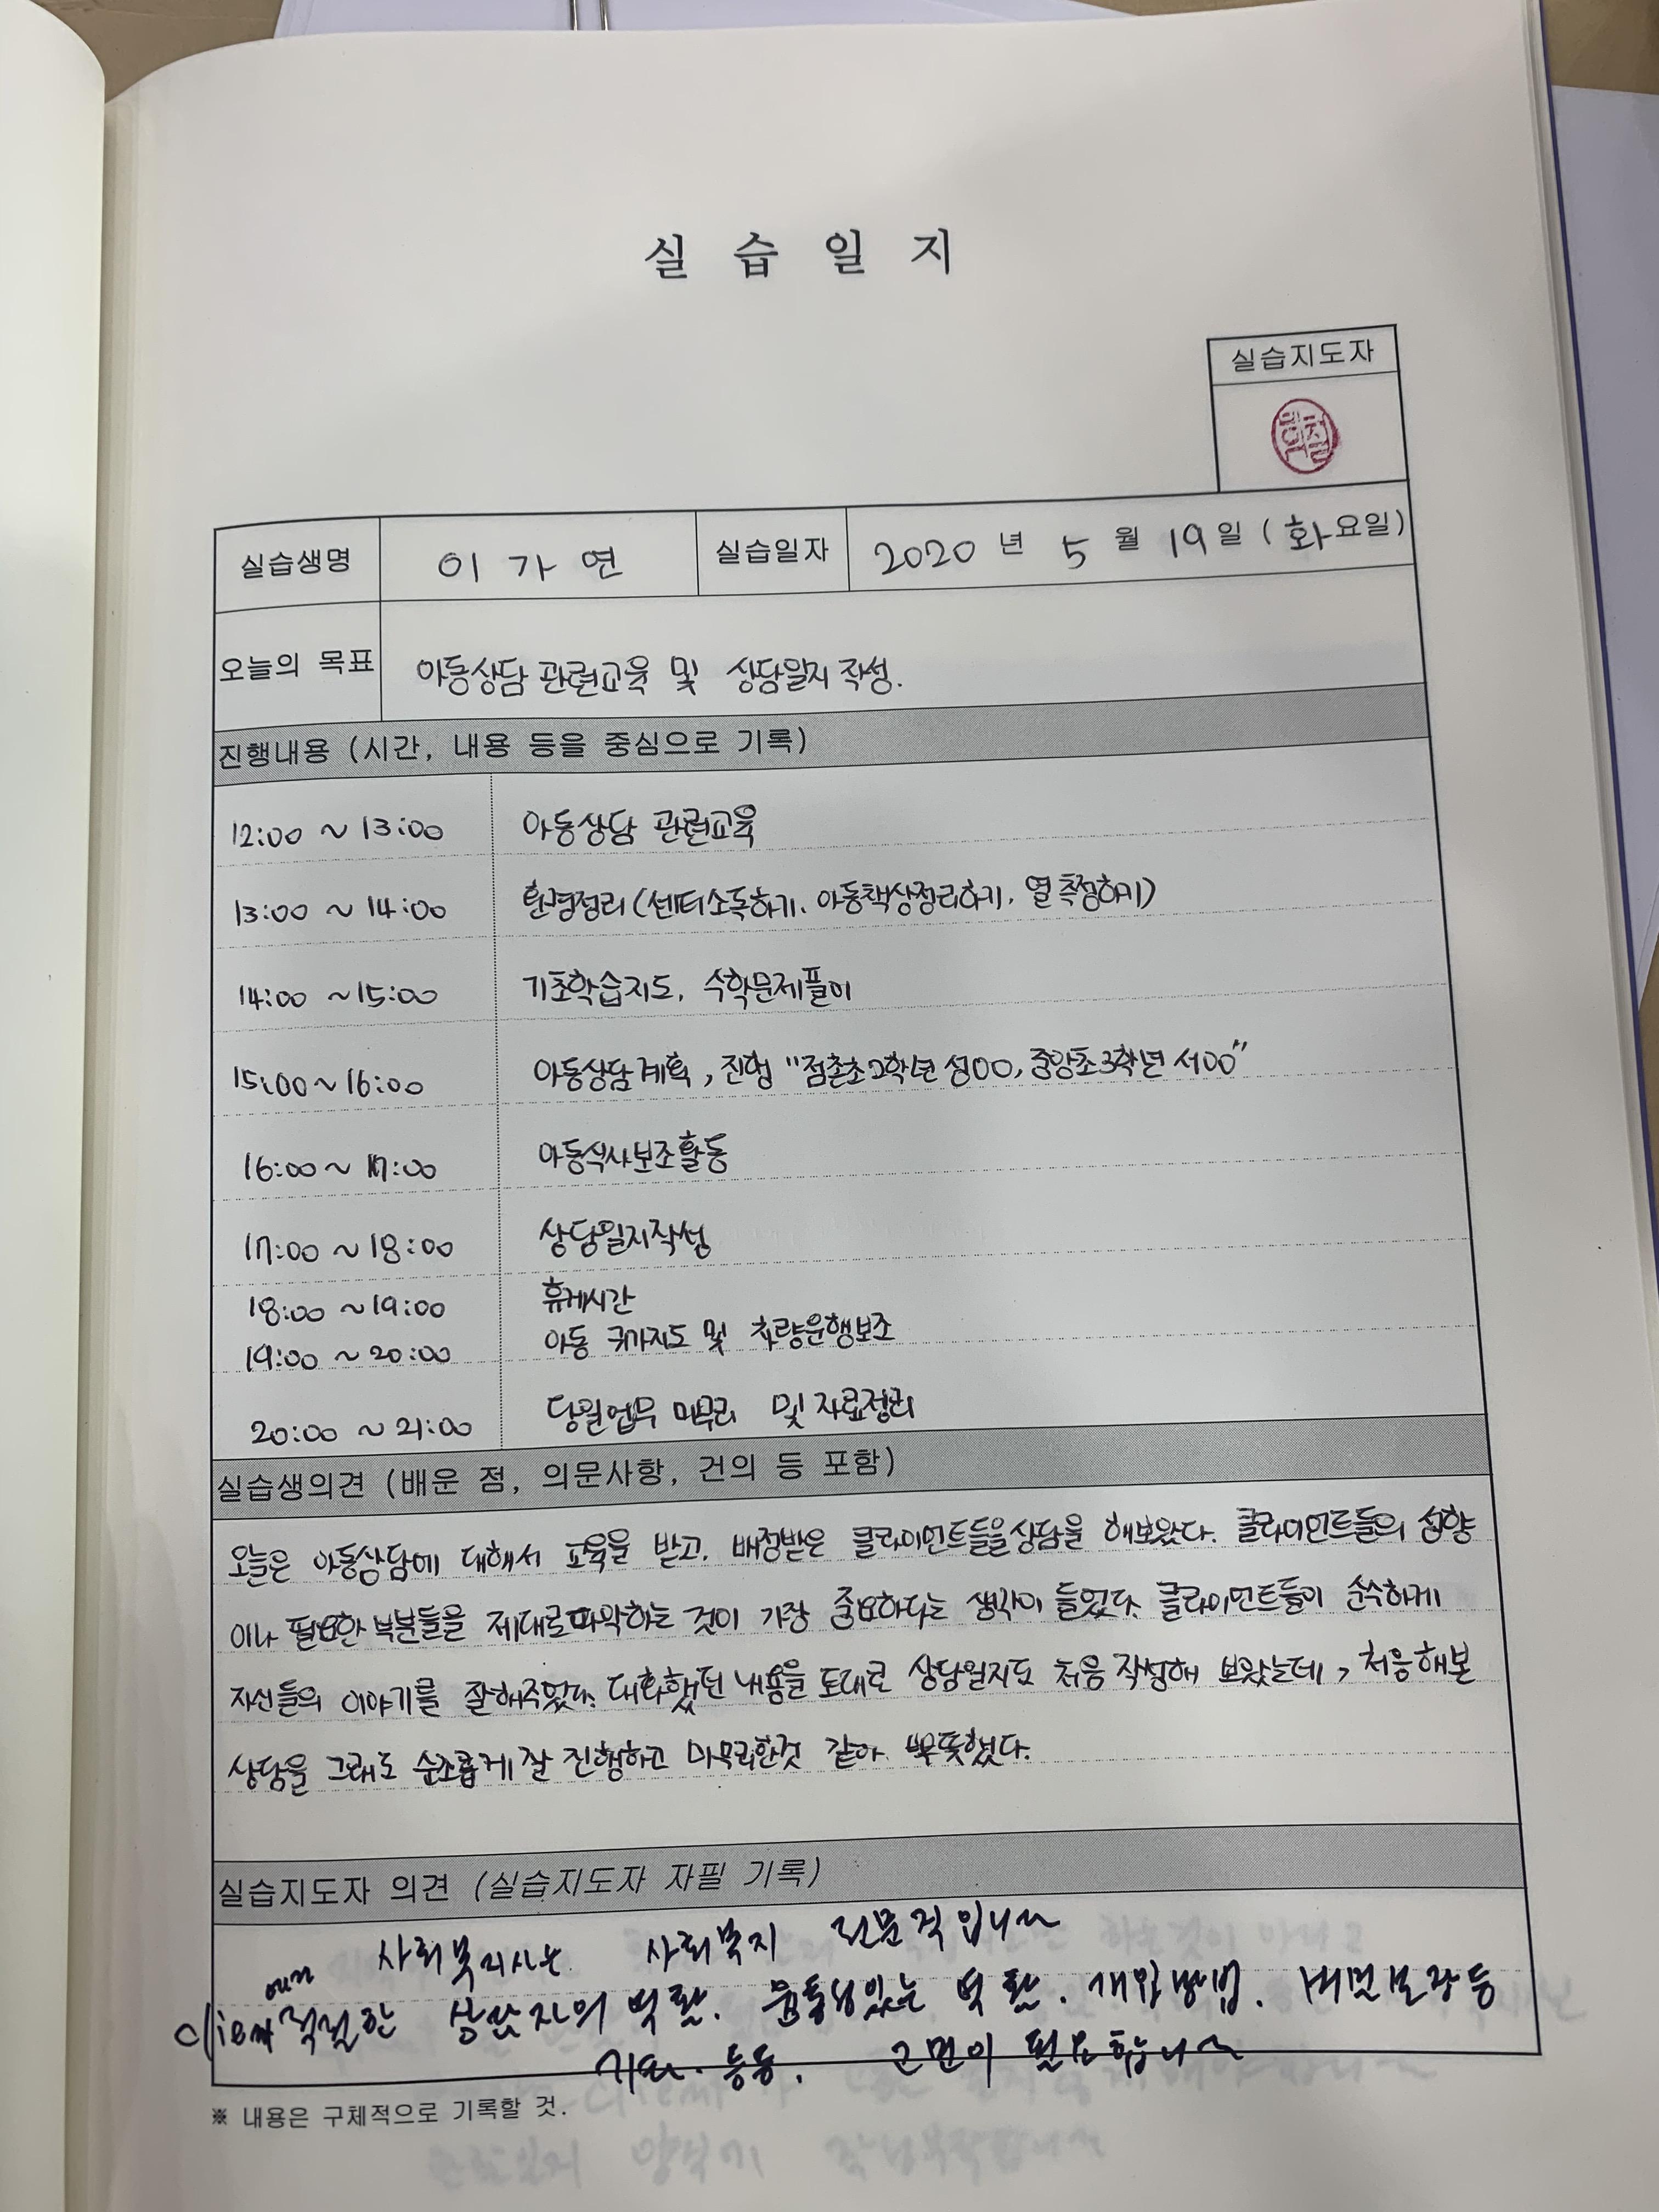 실습일지
실습지도자
실습생명 이가연 실습일자 2020년 5월 19일 (화요일)
오늘의 목표 아동상담 관련교육 및 상담일지 작성.
진행내용 (시간, 내용 등을 중심으로 기록)
12:00 ~ 13:00 아동상담 관련교육
13:00 ~ 14:00 환경정리 (센터소독하기, 아동책상정리하기, 열 측정하기)
14:00 ~ 15:00 기초학습지도, 수학문제풀이
15:00 ~ 16:00 아동상담 계획, 진행 "점촌초2학년 성OO, 중앙초3학년 서OO"
16:00 ~ 17:00 아동식사보조활동
17:00 ~ 18:00 상담일지작성
18:00 ~ 19:00 휴게시간
19:00 ~ 20:00 아동 귀가지도 및 차량운행보조
20:00 ~ 21:00 당일업무 마무리 및 자료정리
실습생의견 (배운 점, 의문사항, 건의 등 포함)
오늘은 아동상담에 대해서 교육을 받고, 배정받은 클라이언트들을 상담을 해보았다. 클라이언트들의 성향
이나 필요한 부분들을 제대로 파악하는 것이 가장 중요하다는 생각이 들었다. 클라이언트들이 순수하게
자신들의 이야기를 잘해주었다. 대화했던 내용을 토대로 상담일지도 처음 작성해 보았는데, 처음해본
상담을 그래도 순조롭게 잘 진행하고 마무리한것 같아 뿌듯했다.
실습지도자 의견 (실습지도자 자필 기록)
사회복지사는 사회복지 전문직입니다
적절한 상담자의 역할. 융통성있는 역할. 개입방법. 비밀보장등
등등. 고민이 필요합니다
※ 내용은 구체적으로 기록할 것.